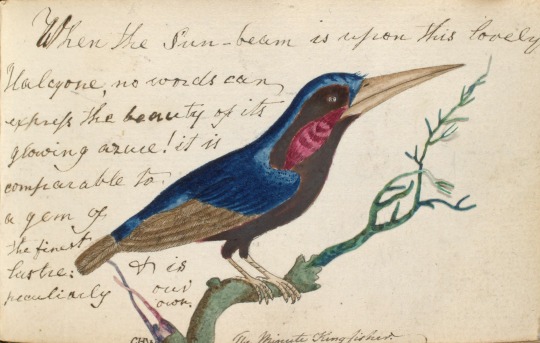 When the Sun-beam is upon this lovely
Halcyone, no words can
express the beauty of its
glowing azure! it is
comparable to
a gem of
the finest
lustre:
peculiarly
& is
our
own.
The Minute Kingfisher